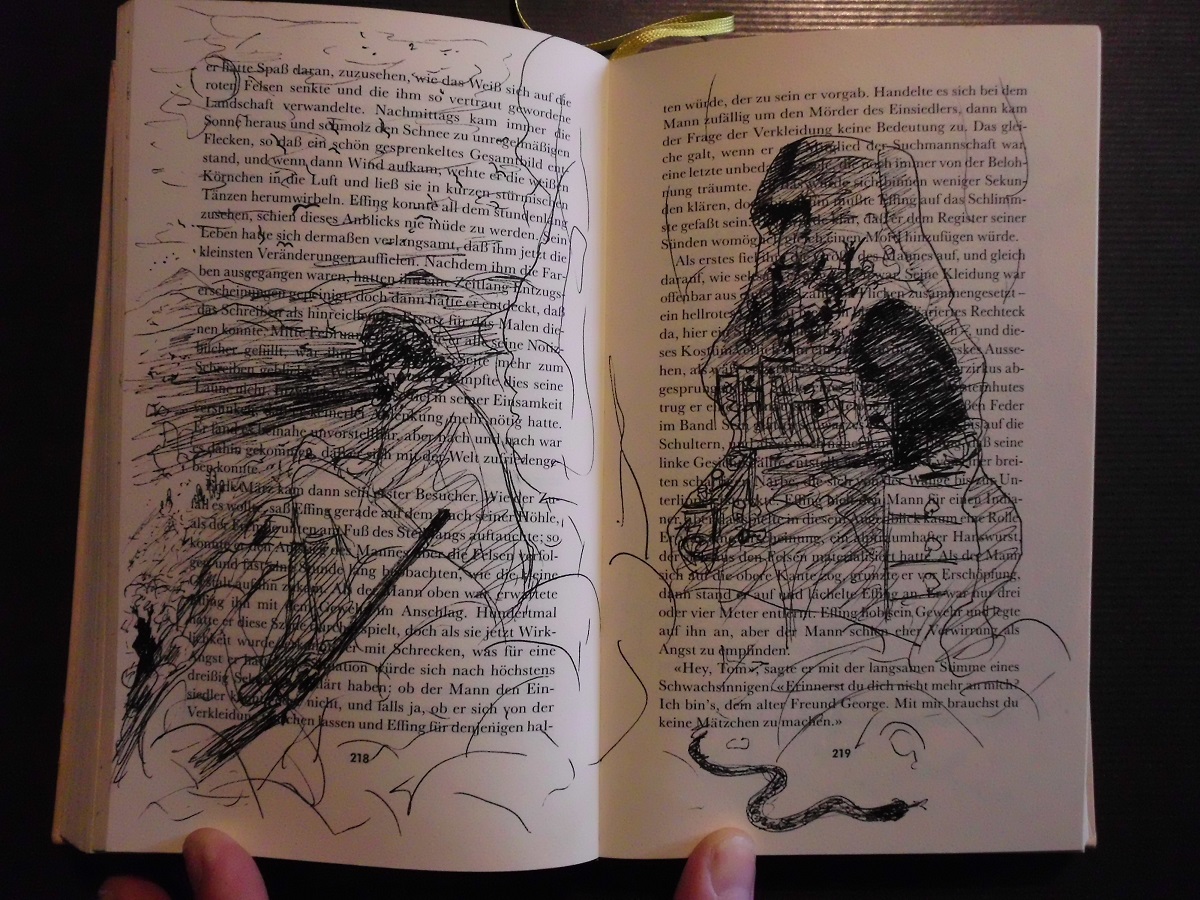 er hatte Spaß daran, zuzusehen, wie das Weiß sich auf die
roten Felsen senkte und die ihm so vertraut gewordene
Landschaft verwandelte. Nachmittags kam immer die
Sonne heraus und schmolz den Schnee zu unregelmäßigen
Flecken, so daß ein schön gesprenkeltes Gesamtbild ent-
stand, und wenn dann Wind aufkam, wehte er die weißen
Körnchen in die Luft und ließ sie in kurzen stürmischen
Tänzen herumwirbeln. Effing konnte all dem stundenlang
zusehen, schien dieses Anblicks nie müde zu werden. Sein
Leben hatte sich dermaßen verlangsamt, daß ihm jetzt die
kleinsten Veränderungen auffielen. Nachdem ihm die Far-
ben ausgegangen waren, hatten ihn eine Zeitlang Entzugs-
erscheinungen gepeinigt, doch dann hatte er entdeckt, daß
das Schreiben als hinreichender Ersatz für das Malen die-
nen konnte. Mitte Februar er alle seine Notiz-
bücher gefüllt, war ihm Seite mehr zum
Schreiben geblieben. dämpfte dies seine
Laune nicht. in seiner Einsamkeit
versunken, daß er keinerlei Ablenkung mehr nötig hatte.
Er fand es beinahe unvorstellbar, aber nach und nach war
es dahin gekommen, daß er sich mit der Welt zufriedenge-
ben konnte.
Ende März kam dann sein erster Besucher. Wie der Zu-
fall es wollte, saß Effing gerade auf dem Dach seiner Höhle,
als der Fremde unten am Fuß des Steilhangs auftauchte; so
konnte er den Aufstieg des Mannes über die Felsen verfol-
gen und fast eine Stunde lang beobachten, wie die kleine
Gestalt auf ihn zukam. Als der Mann oben war, erwartete
Effing ihn mit dem Gewehr im Anschlag. Hundertmal
hatte er diese Szene durchgespielt, doch als sie jetzt Wirk-
lichkeit wurde, bekam er mit Schrecken, was für eine
Angst er hatte. Situation würde sich nach höchstens
dreißig Sekunden geklärt haben: ob der Mann den Ein-
siedler kannte oder nicht, und falls ja, ob er sich von der
Verkleidung täuschen lassen und Effing für denjenigen hal-
218
ten würde, der zu sein er vorgab. Handelte es sich bei dem
Mann zufällig um den Mörder des Einsiedlers, dann kam
der Frage der Verkleidung keine Bedeutung zu. Das glei-
che galt, wenn er Mitglied der Suchmannschaft war,
eine letzte unbeda die noch immer von der Beloh-
nung träumte. das würde sich binnen weniger Sekun-
den klären, doch müßte Effing auf das Schlimm-
ste gefaßt sein. klar, daß er dem Register seiner
Sünden womöglich gleich einen Mord hinzufügen würde.
Als erstes fiel ihm die Größe des Mannes auf, und gleich
darauf, wie seltsam war. Seine Kleidung war
offenbar aus Flicken zusammengesetzt –
ein hellrotes kariertes Rechteck
da, hier ein und die-
ses Kostüm Ausse-
hen, als wäre ab-
gesprungen.
trug er Feder
im Band. Sein schwarzes auf die
Schultern, und seine
linke Gesichtshälfte entstellt brei-
ten schartigen Narbe, die sich von der Wange bis zur Un-
terlippe erstreckte. Effing hielt den Mann für einen India-
ner, aber das spielte in diesem Augenblick kaum eine Rolle.
Er war eine Erscheinung, ein alptraumhafter Hanswurst,
der sich aus den Felsen materialisiert hatte. Als der Mann
sich auf die obere Kante zog, grunzte er vor Erschöpfung,
dann stand er auf und lächelte Effing an. Er war nur drei
oder vier Meter entfernt. Effing hob sein Gewehr und legte
auf ihn an, aber der Mann schien eher Verwirrung als
Angst zu empfinden.
«Hey, Tom», sagte er mit der langsamen Stimme eines
Schwachsinnigen. «Erinnerst du dich nicht mehr an mich?
Ich bin's, dein alter Freund George. Mit mir brauchst du
keine Mätzchen zu machen.»
219